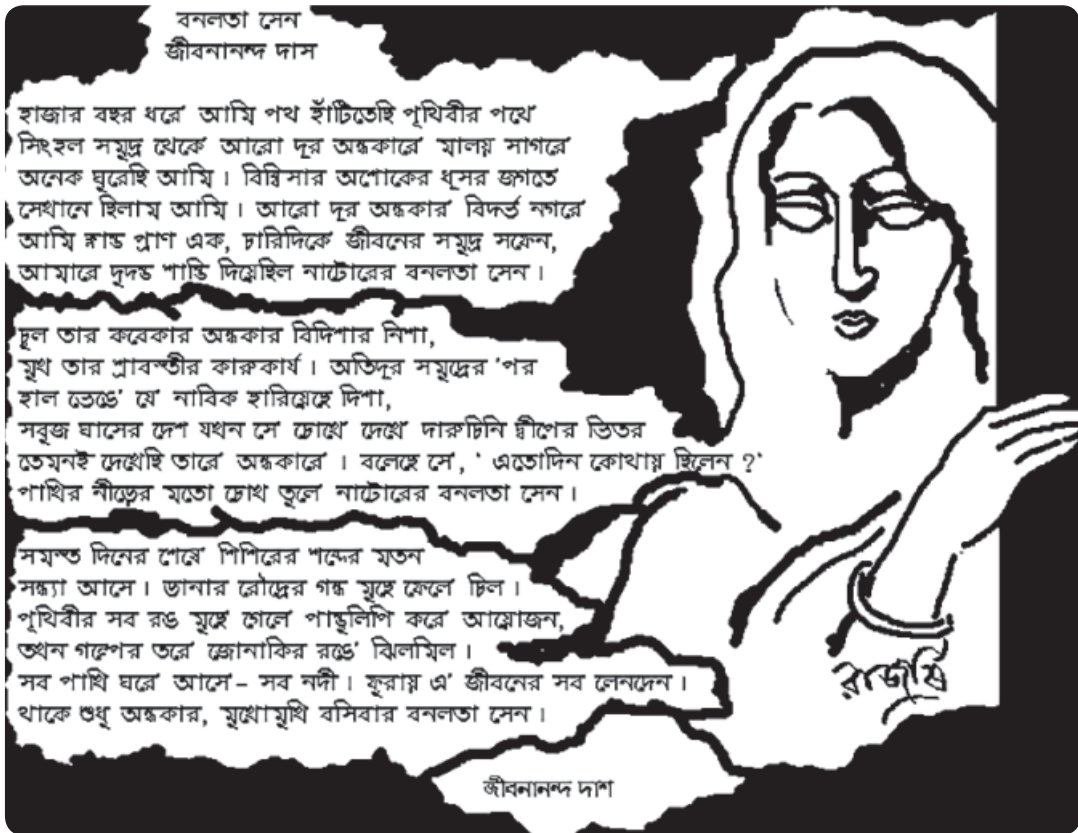 বনলতা সেন
জীবনানন্দ দাস
হাজার বছর ধরে আমি পথ হাঁটিতেছি পৃথিবীর পথে
সিংহল সমুদ্র থেকে আরো দূর অন্ধকারে মালয় সাগরে
অনেক ঘুরেছি আমি। বিম্বিসার অশোকের ধূসর জগতে
সেখানে ছিলাম আমি। আরো দূর অন্ধকার বিদর্ভ নগরে
আমি ক্লান্ত প্রাণ এক, চারিদিকে জীবনের সমুদ্র সফেন,
আমারে দুদন্ড শান্তি দিয়েছিল নাটোরের বনলতা সেন।
চুল তার কবেকার অন্ধকার বিদিশার নিশা,
মুখ তার শ্রাবস্তীর কারুকার্য। অতিদূর সমুদ্রের 'পর
হাল ভেঙে যে নাবিক হারিয়েছে দিশা,
সবুজ ঘাসের দেশ যখন সে চোখে দেখে দারুচিনি দ্বীপের ভিতর
তেমনই দেখেছি তারে অন্ধকারে। বলেছে সে, 'এতোদিন কোথায় ছিলেন?'
পাখির নীড়ের মতো চোখ তুলে নাটোরের বনলতা সেন।
সমস্ত দিনের শেষে শিশিরের শব্দের মতন
সন্ধ্যা আসে। ডানার রৌদ্রের গন্ধ মুছে ফেলে চিল।
পৃথিবীর সব রঙ মুছে গেলে পান্ডুলিপি করে আয়োজন,
তখন গল্পের তরে জোনাকির রঙে ঝিলমিল।
সব পাখি ঘরে আসে- সব নদী। ফুরায় এ জীবনের সব লেনদেন।
থাকে শুধু অন্ধকার, মুখোমুখি বসিবার বনলতা সেন।
রাজর্ষি
জীবনানন্দ দাশ